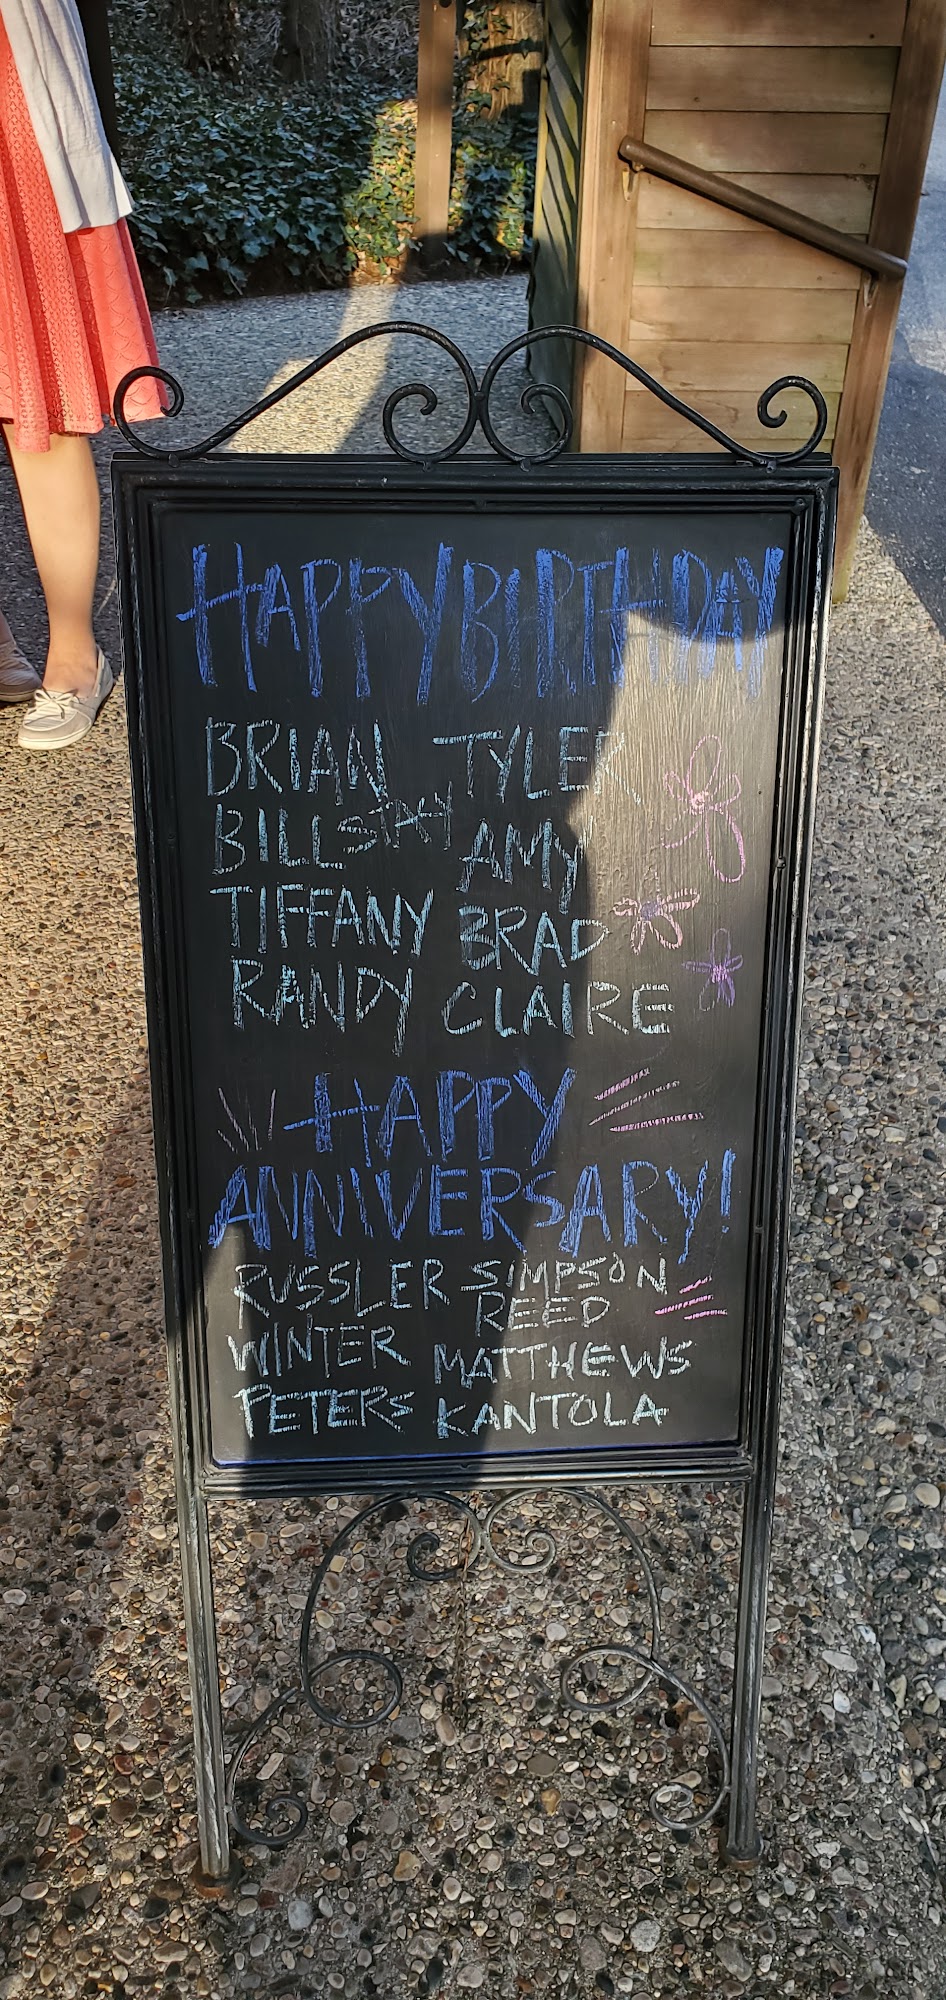 HAPPY BIRTHDAY
BRIAN TYLER
BILL AMY
TIFFANY BRAD
RANDY CLAIRE
HAPPY
ANNIVERSARY!
RUSSLER SIMPSON
REED
WINTER MATTHEWS
PETERS KANTOLA